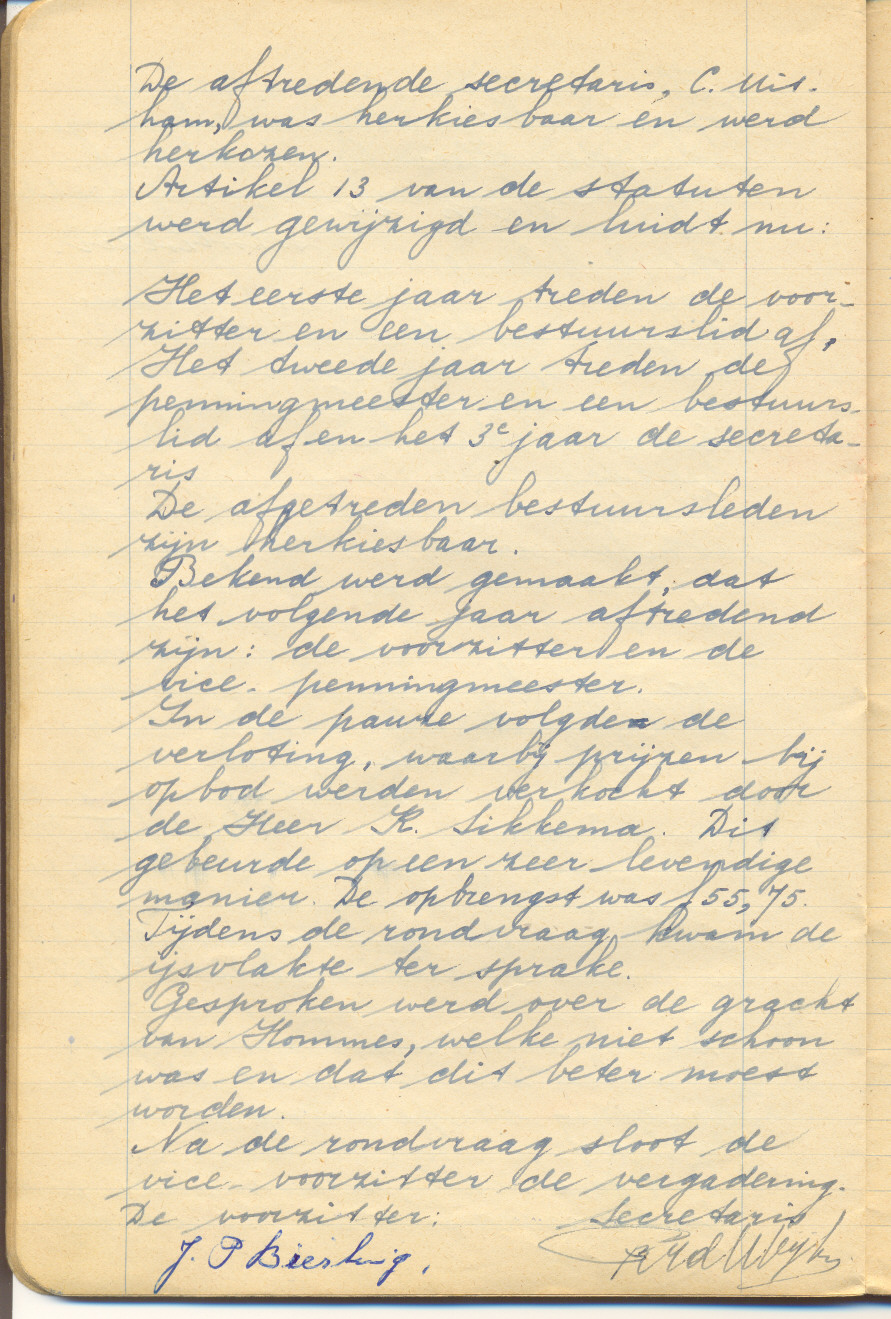 De aftredende secretaris, C. Uis-
ham, was herkiesbaar en werd
herkozen.
Artikel 13 van de statuten
werd gewijzigd en luidt nu:
Het eerste jaar treden de voor-
zitter en een bestuurslid af,
Het tweede jaar treden de
penningmeester en een bestuurs-
lid af en het 3e jaar de secreta-
ris
De afgetreden bestuursleden
zijn herkiesbaar.
Bekend werd gemaakt, dat
het volgende jaar aftredend
zijn: de voorzitter en de
vice-penningmeester.
In de pauze volgde de
verloting, waarbij prijzen bij
opbod werden verkocht door
de Heer K. Sikkema. Dit
gebeurde op een zeer levendige
manier. De opbrengst was f 55,75.
Tijdens de rondvraag kwam de
ijsvlakte ter sprake.
Gesproken werd over de gracht
van Hommes, welke niet schoon
was en dat dit beter moest
worden.
Na de rondvraag sloot de
vice-voorzitter de vergadering.
De voorzitter: Secretaris
J. P. Bierling.